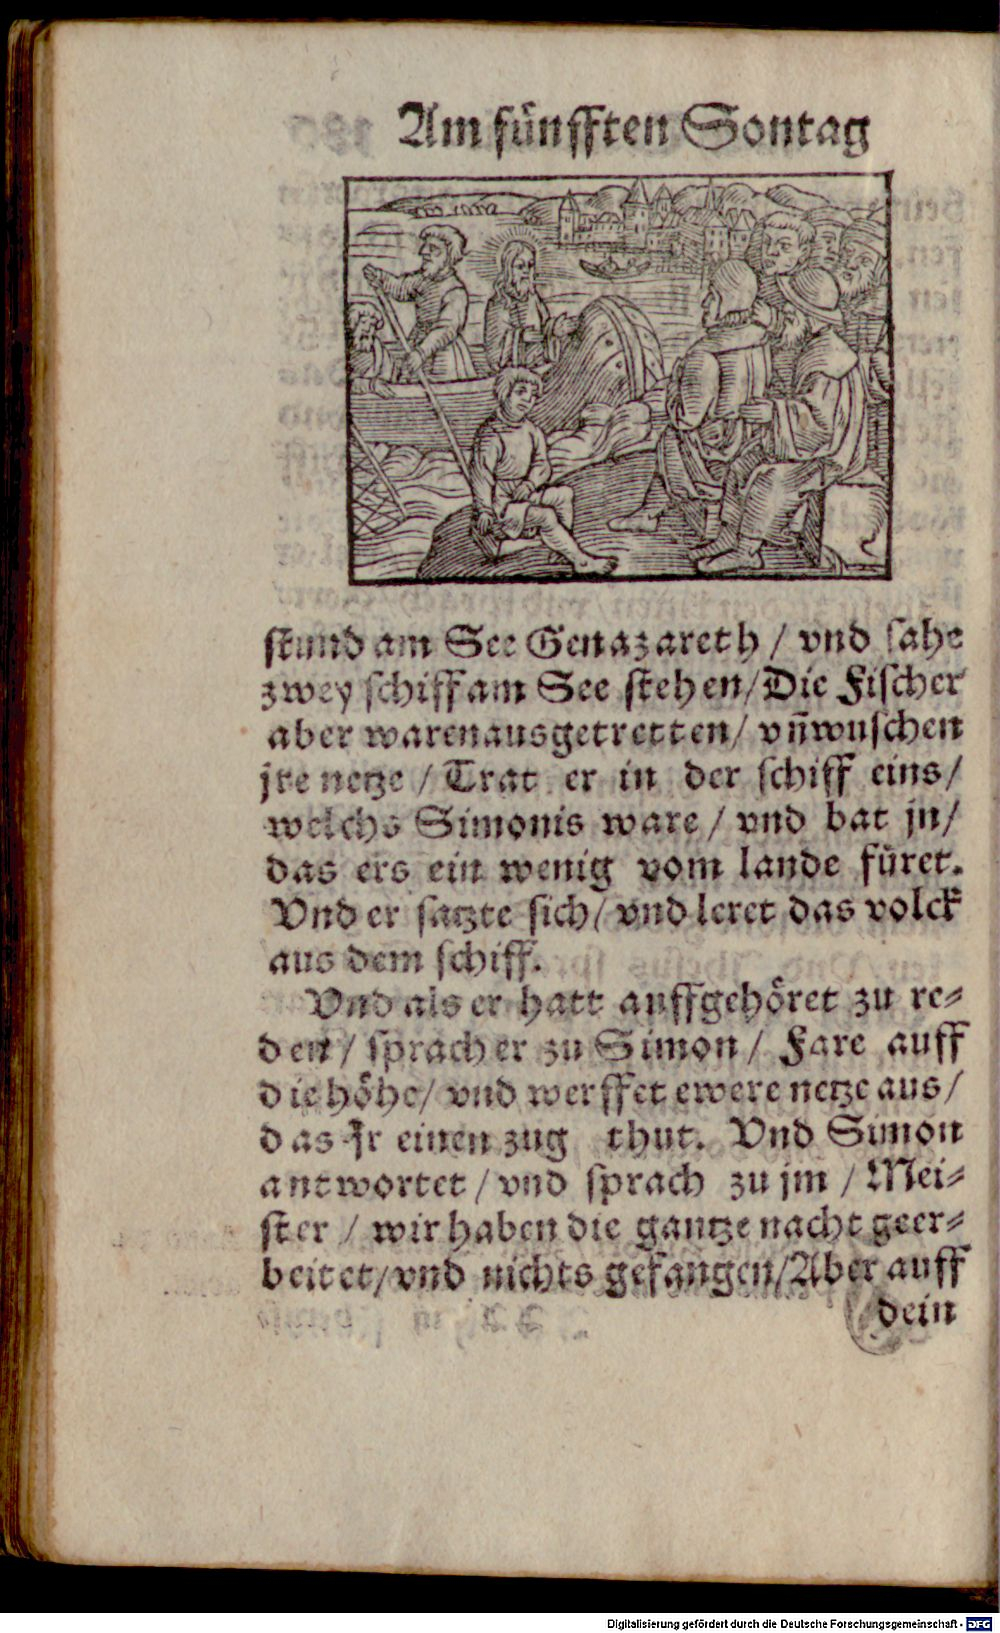 Am fünfften Sontag
stund am See Genazareth / vnd sahe
zwey schiff am See stehen / Die Fischer
aber waren ausgetretten / vñ wuschen
jre netze / Trat er in der schiff eins /
welchs Simonis ware / vnd bat jn /
das ers ein wenig vom lande füret.
Vnd er satzte sich / vnd leret das volck
aus dem schiff.
Vnd als er hatt auffgehöret zu re-
den / sprach er zu Simon / Fare auff
die höhe / vnd werffet ewere netze aus /
das Ir einen zug thut. Vnd Simon
antwortet / vnd sprach zu jm / Mei-
ster / wir haben die gantze nacht geer-
beitet / vnd nichts gefangen / Aber auff
dein
Digitalisierung gefördert durch die Deutsche Forschungsgemeinschaft - DFG